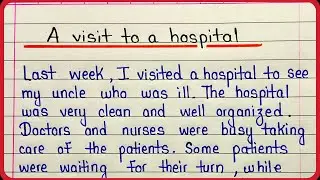 A visit to a hospital
Last week, I visited a hospital to see
my uncle who was ill. The hospital
was very clean and well organized.
Doctors and nurses were busy taking
care of the patients. Some patients
were waiting for their turn, while